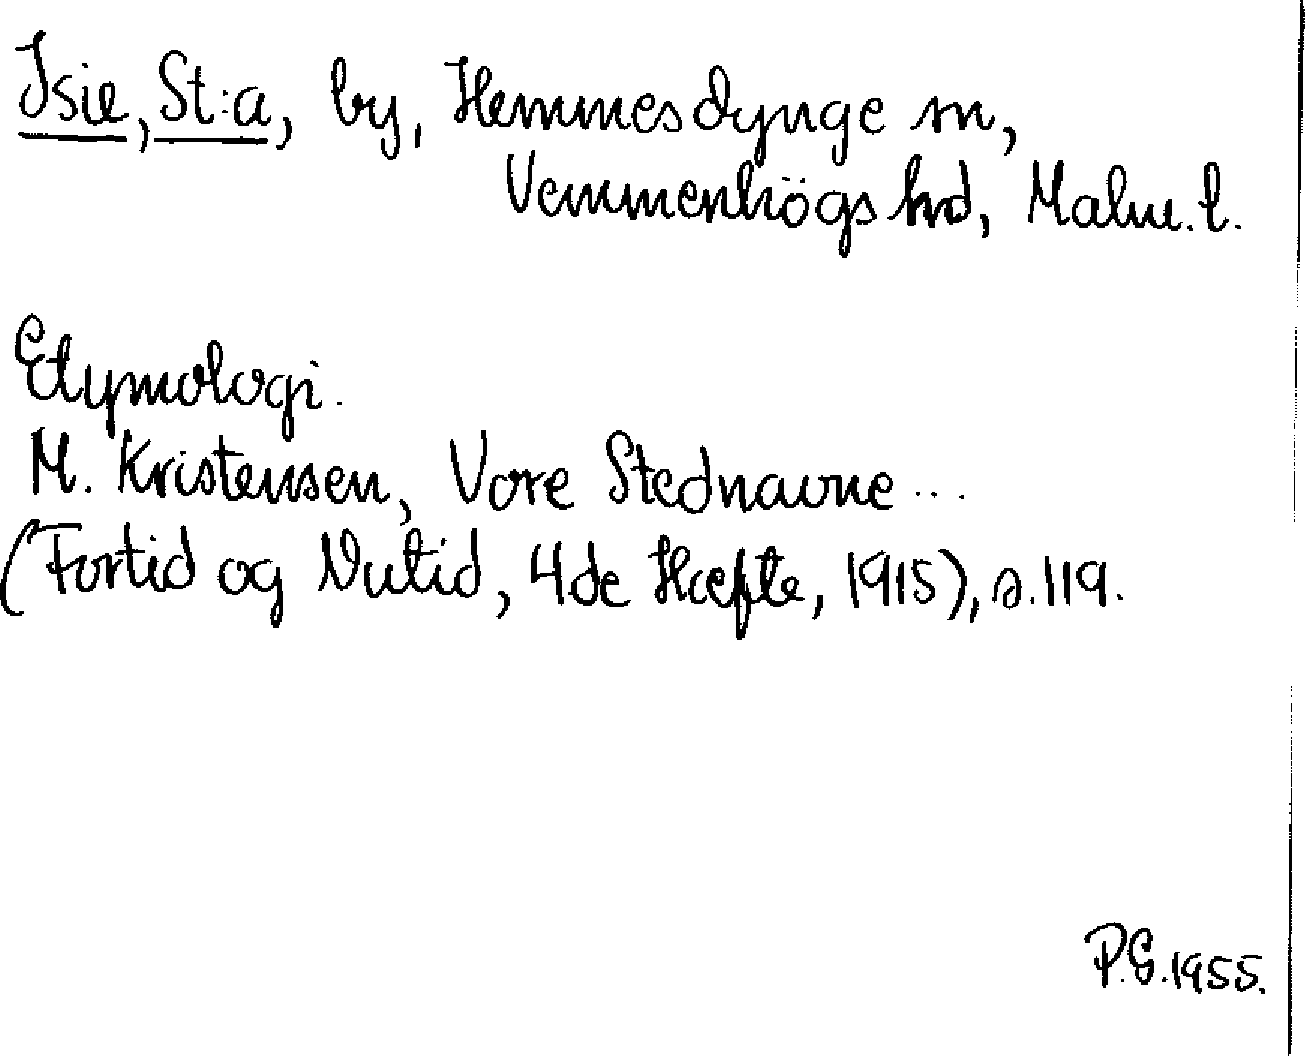 Isie, St:a, by, Hemmesdynge sn,
Vemmenhögs hd, Malm. l.
Etymologi.
M. Kristensen, Vore Stednavne...
(Fortid og Nutid, 4de Hæfte, 1915), s. 119.
P.G. 1955.